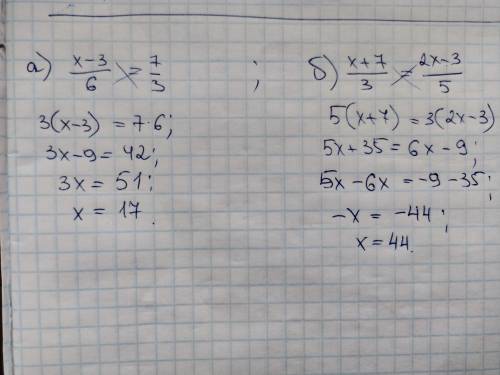 а) x-3/6 = 7/3 ;
3(x-3) = 7·6;
3x-9 = 42;
3x = 51;
x = 17.
б) x+7/3 = 2x-3/5
5(x+7) = 3(2x-3)
5x+35 = 6x-9;
5x-6x = -9-35;
-x = -44;
x = 44.